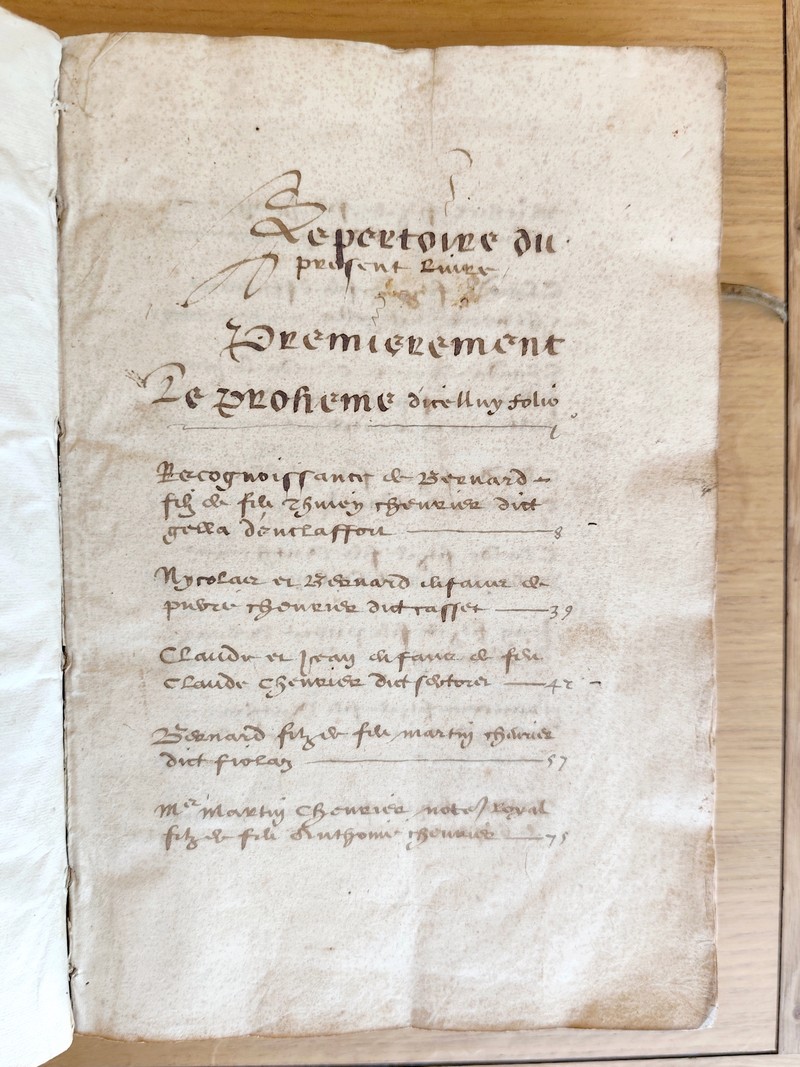 Repertoire du
present Livre
Premierement
Le proheme dicelluy folio
1
Recognoissance de Bernard
filz de feu chevrier dict
gella d'enclaffort 8
Nycolas et Bernard enfans de
pierre chevrier dict casset 39
Claude et Jean enfans de feu
Claude Chevrier dict 42
Bernard filz de feu martin chevrier
dict fiolaz 57
Mer Martin Chevrier note Royal
filz de feu Anthoine chevrier 75